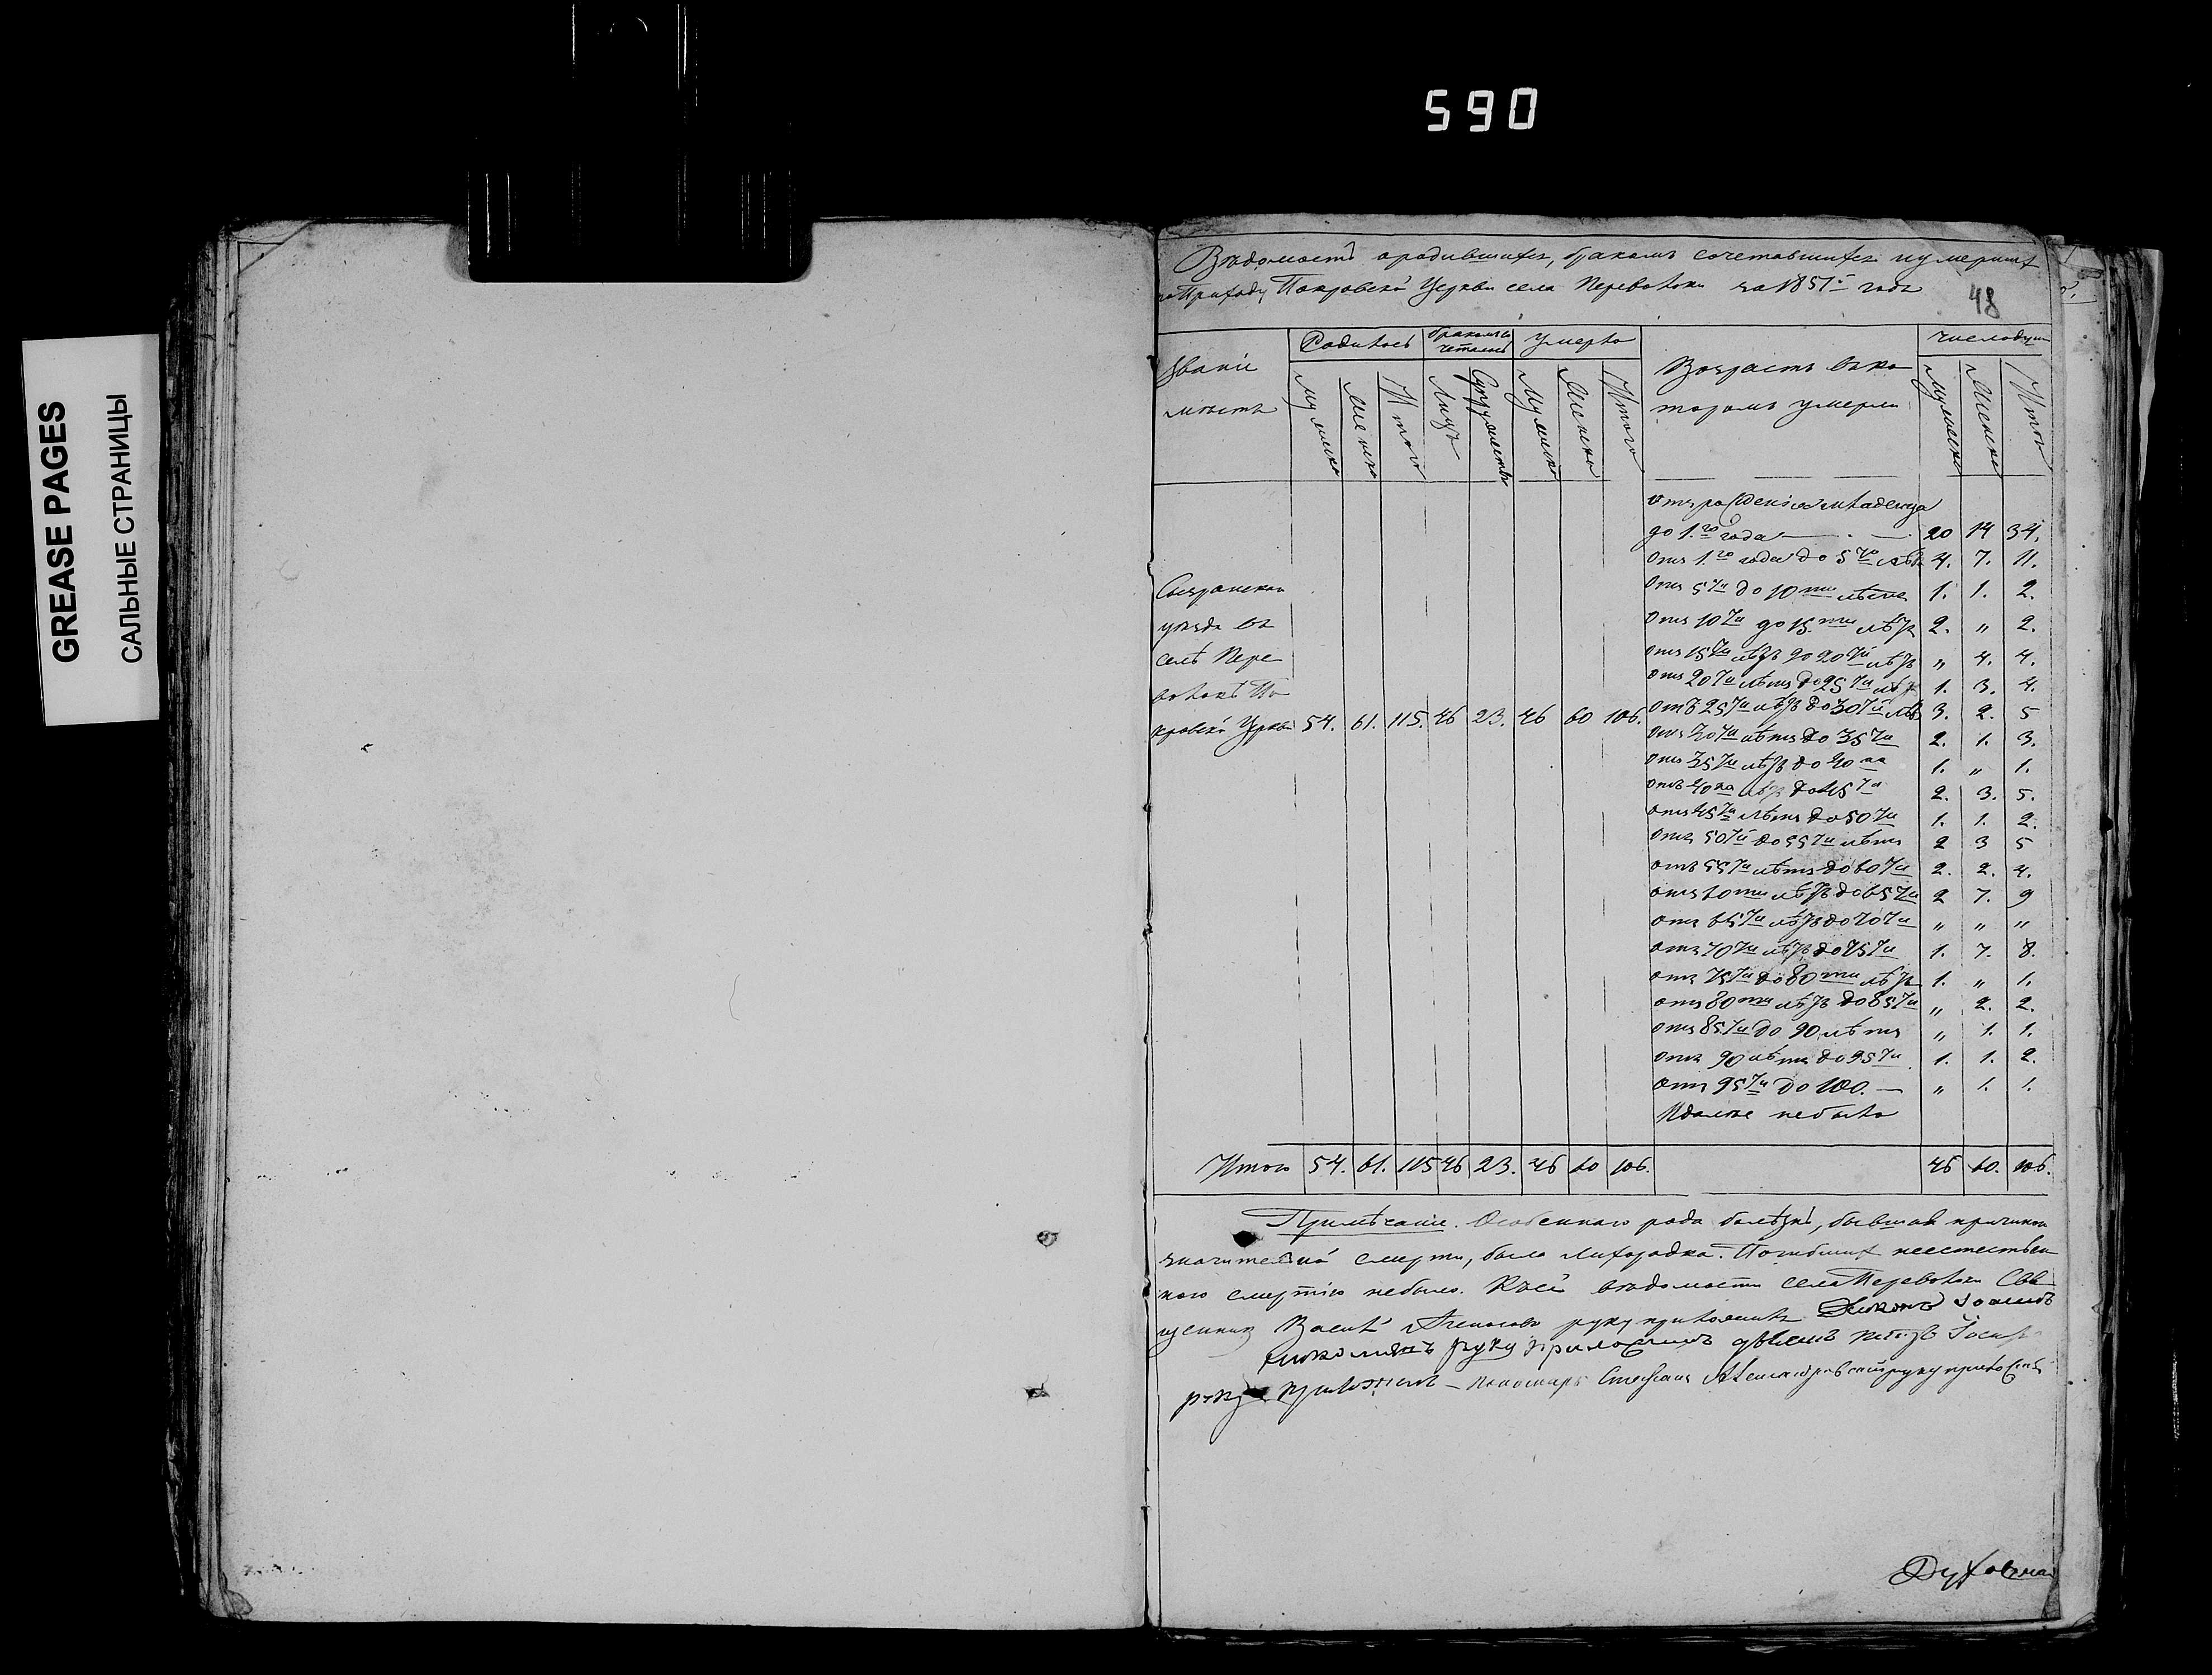 590
GREASE PAGES
САЛЬНЫЕ СТРАНИЦЫ
Вѣдомость о родившихся, бракомъ сочетавшихся и умершихъ
по Приходу Покровской Церкви села Переволоки за 1851й годъ
48
Званіе мѣстъ
Родилось
бракомъ сочеталось
Умерло
Возрастъ въ которомъ умерли
Число душ
Мужеска Женска Итого Лицъ Супружествъ Мужеска Женска Итого Мужеска Женска Итого
отъ рожденія младенца
до 1.го года 20 14 34.
отъ 1.го года до 5ти лѣтъ 4. 7. 11.
Сызранскаго отъ 5ти до 10ти лѣтъ 1. 1. 2.
уѣзда въ отъ 10ти до 15ти лѣтъ 2. „ 2.
селѣ Пере- отъ 15ти лѣтъ до 20ти лѣтъ „ 4. 4.
волокѣ По- отъ 20ти лѣтъ до 25ти лѣтъ 1. 3. 4.
кровской Церкви 54. 61. 115. 46 23. 46 60 106. отъ 25ти лѣтъ до 30ти лѣтъ 3. 2. 5
отъ 30ти лѣтъ до 35ти 2. 1. 3.
отъ 35ти лѣтъ до 40ка 1. „ 1.
отъ 40ка лѣтъ до 45ти 2. 3. 5.
отъ 45ти лѣтъ до 50ти 1. 1. 2.
отъ 50ти до 55ти лѣтъ 2 3 5
отъ 55ти лѣтъ до 60ти 2. 2. 4.
отъ 60ти лѣтъ до 65ти 2 7. 9
отъ 65ти лѣтъ до 70ти „ „ „
отъ 70ти лѣтъ до 75ти 1. 7. 8.
отъ 75ти до 80ти лѣтъ 1. „ 1.
отъ 80ти лѣтъ до 85ти „ 2. 2.
отъ 85ти до 90 лѣтъ „ 1. 1.
отъ 90 лѣтъ до 95ти 1. 1. 2.
отъ 95ти до 100. — „ 1. 1.
И далѣе небыло
Итого 54. 61. 115 46 23. 46 60 106. 46 60. 106.
Примѣчаніе. Особеннаго рода болѣзнь, бывшая причиною
значительной смерти, была лихорадка. Погибшихъ неестествен
ною смертію небыло. К сей вѣдомости села Переволоки Свя
щенникъ Василій руку приложилъ Іоаннъ
руку приложилъ Петръ
руку приложилъ — пономарь Стефанъ руку приложилъ
Духовная